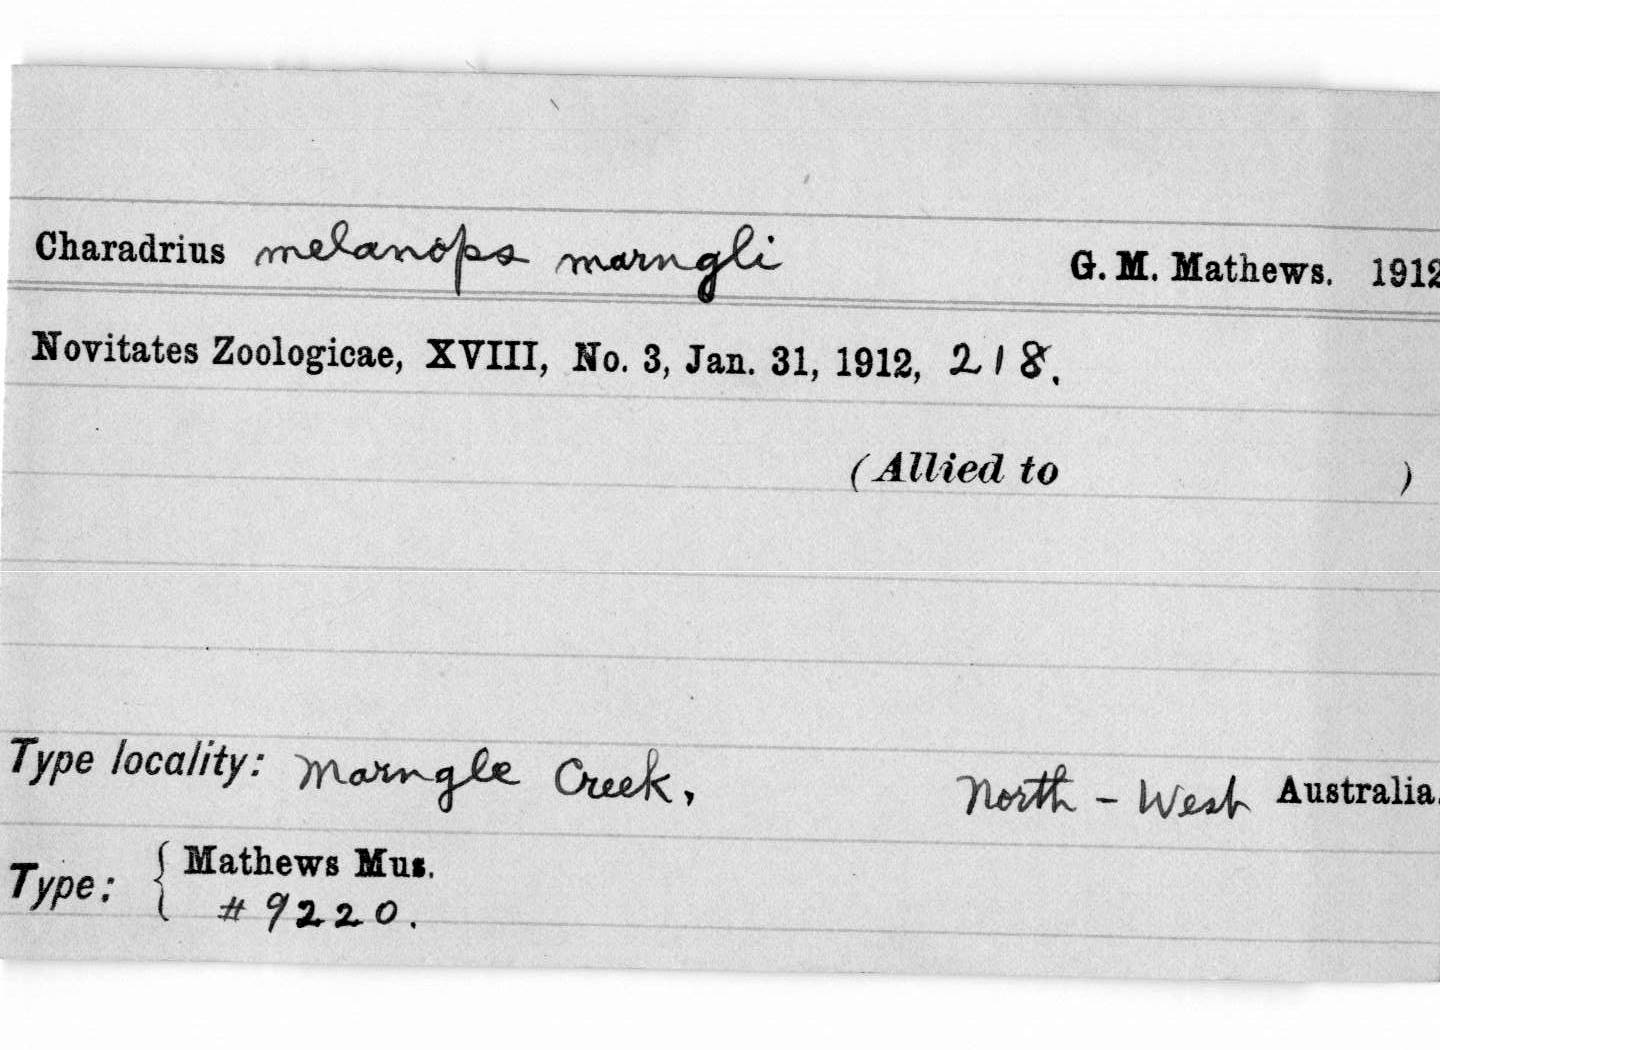 Charadrius melanops marngli G. M. Mathews. 1912
Novitates Zoologicae, XVIII, No. 3, Jan. 31, 1912, 218.
(Allied to )
Type locality: Marngle Creek, North-West Australia.
Type: { Mathews Mus.
# 9220.